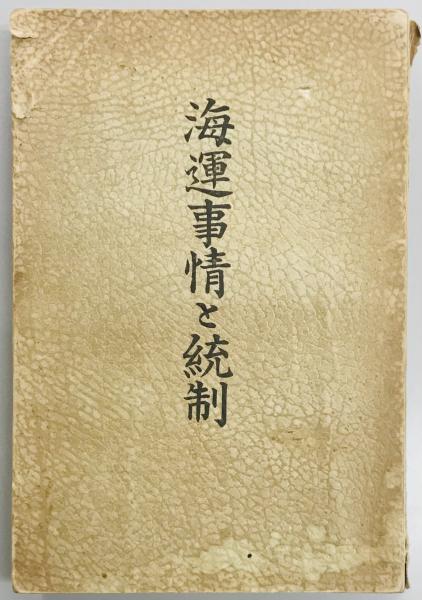 海運事情と統制